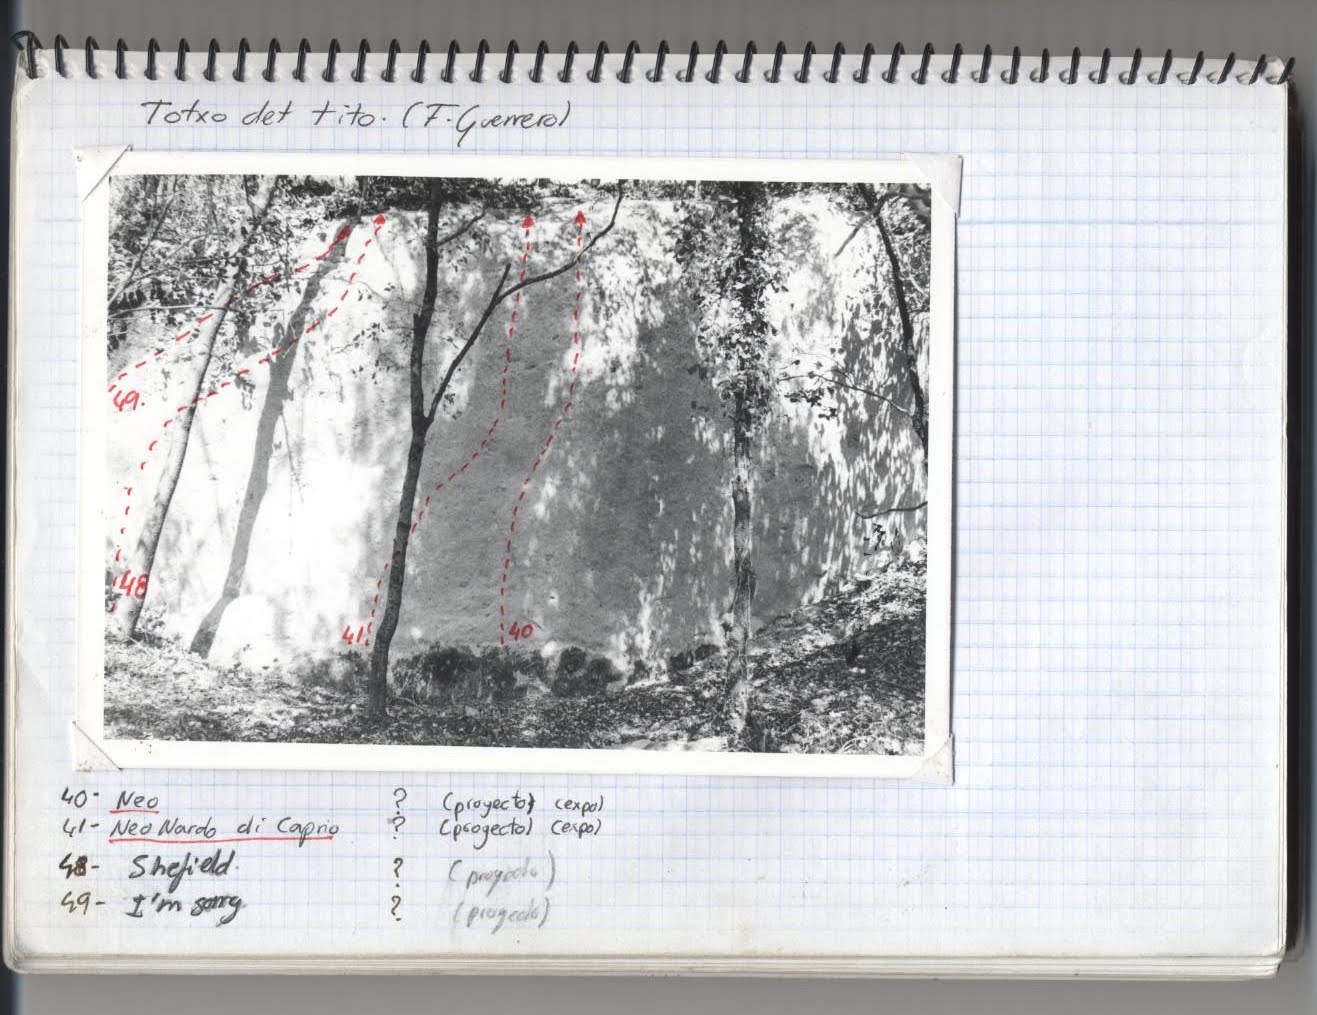 Totxo det tito. (F. Guerrero)
49.
48
41
40
40- Neo ? (proyecto) (expo)
41- Neo Nardo di Caprio ? (proyecto) (expo)
48- Shefield. ? (proyecto)
49- I'm sorry. ? (proyecto)